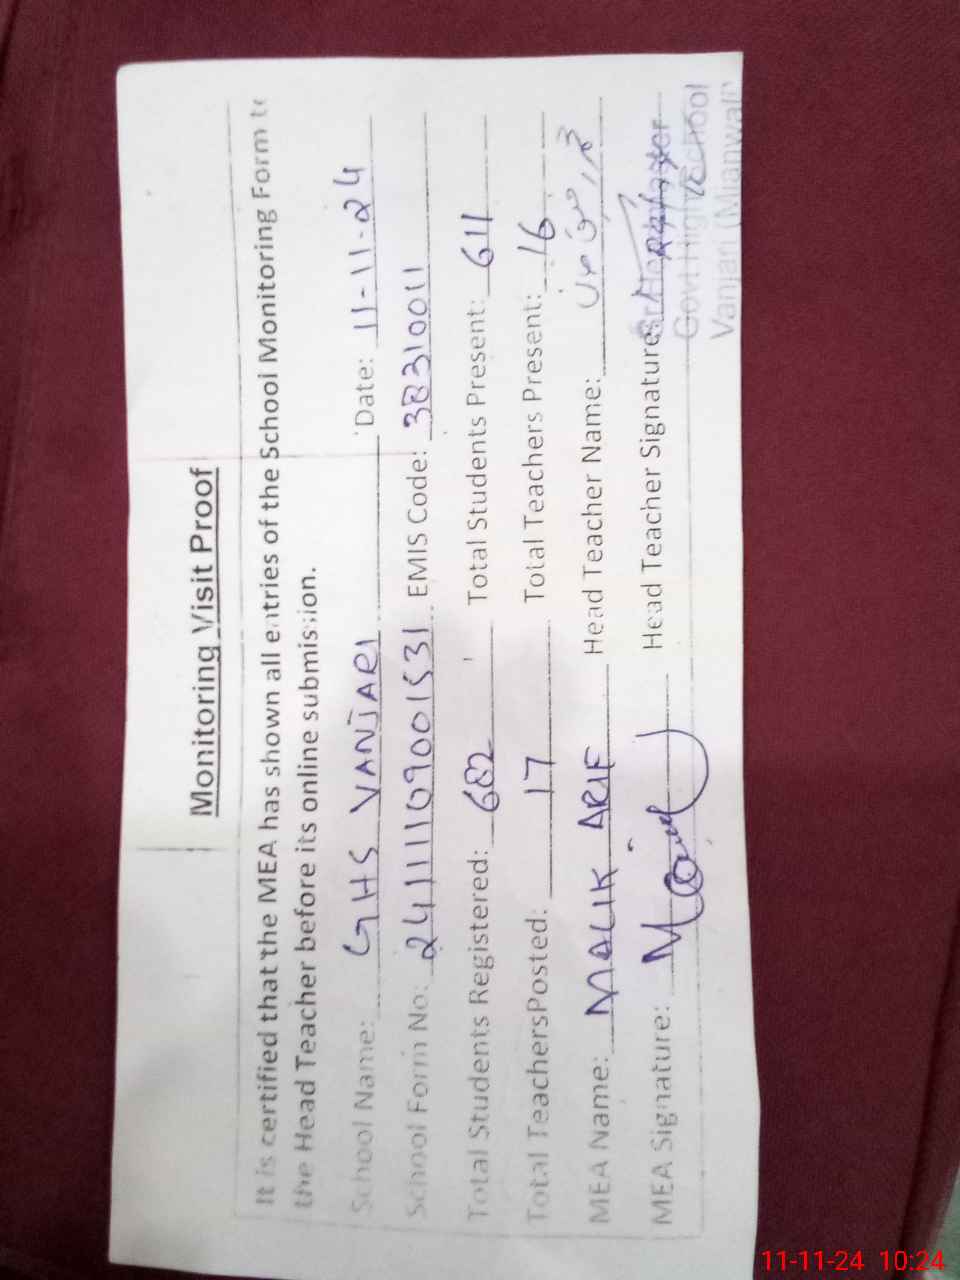 Monitoring Visit Proof
It is certified that the MEA has shown all entries of the School Monitoring Form to
the Head Teacher before its online submission.
School Name: GHS VANJARI Date: 11-11-24
School Form No: 24111109001531 EMIS Code: 38310011
Total Students Registered: 682 Total Students Present: 611
Total TeachersPosted: 17 Total Teachers Present: 16
MEA Name: MALIK ARIF Head Teacher Name:
MEA Signature: Head Teacher Signature:
Sr. Headmaster
Govt. High School
Vanjari (Mianwali)
11-11-24 10:24